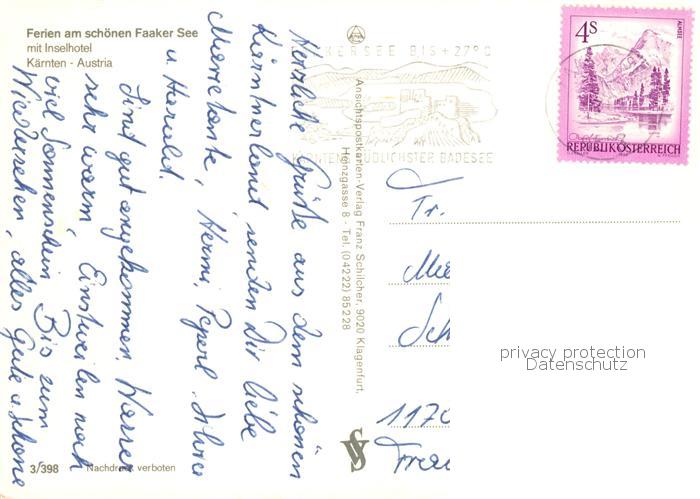 Ferien am schönen Faaker See
mit Inselhotel
Kärnten - Austria
Herzliche Grüße aus dem schönen
Kärntnerland senden Dir liebe
Mimitante, Hermi, Peperl, Silvia
u. Harald.
Sind gut angekommen, Wasser
sehr warm, Einstweilen noch
viel Sonnenschein. Bis zum
Wiedersehen, alles Gute u. schöne
3/398
Nachdruck verboten
Ansichtspostkarten-Verlag Franz Schilcher, 9020 Klagenfurt,
Heinzgasse 8 - Tel. (04222) 85228
KERSEE BIS +27°C
SÜDLICHSTER BADESEE
4S
ALMSEE
REPUBLIK ÖSTERREICH
Fr.
Sch
1170
privacy protection
Datenschutz